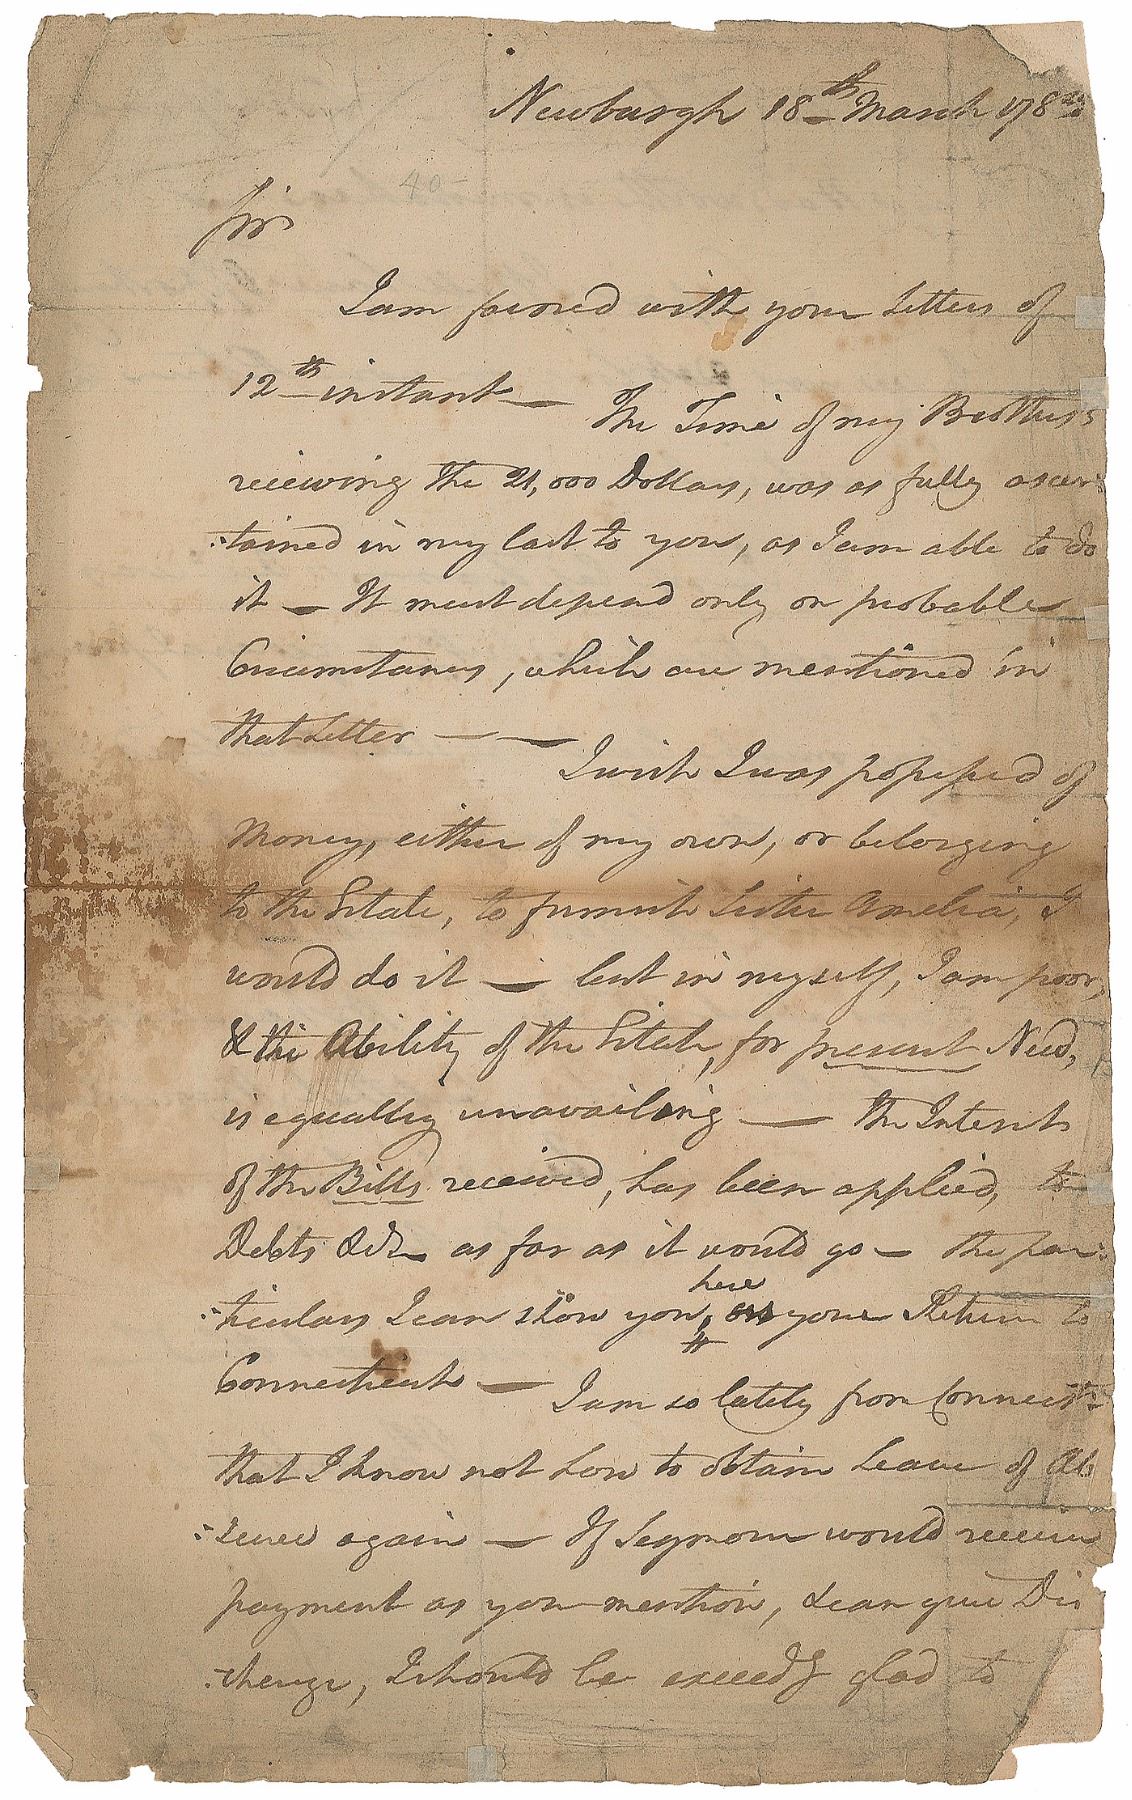 Newburgh 18th March 178
40
Sir
I am favored with your Letters of
12th instant — The Time of my Brothers
receiving the 21,000 Dollars, was as fully ascer:
:tained in my last to you, as I am able to do
it — It must depend only on probable
Circumstances, which are mentioned in
that Letter — —
I wish I was possessed of
Money, either of my own, or belonging
to the Estate, to furnish Sister Amelia, I
would do it — but in myself, I am poor,
& the Ability of the Estate, for present Need,
is equally unavailing — the Interest
of the Bills received, has been applied, to
Debts &c as far as it would go — the par:
:ticulars I can show you, here on your Return to
Connecticut — I am so lately from Connectt
that I know not how to obtain Leave of Ab
:sence again — If Seymour would receive
payment as you mention, & can give Dis
:charge, I should be exceedg glad to